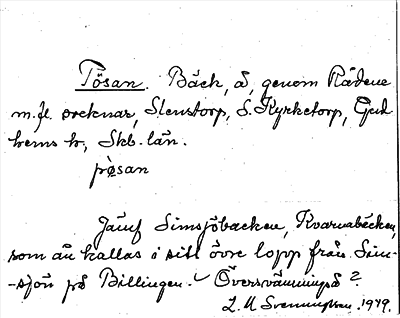 Tösan. Bäck, å, genom Rådene
m. fl. socknar, Stenstorp, S. Kyrketorp, Gud
hems h, Skb. län.
pøsan
Jämf Simsjöbacken, Kvarnabäcken,
som ån kallas i sitt övre lopp från Sim-
-sjön på Billingen. Översvämningså?
L. M Svenungsson. 1949.